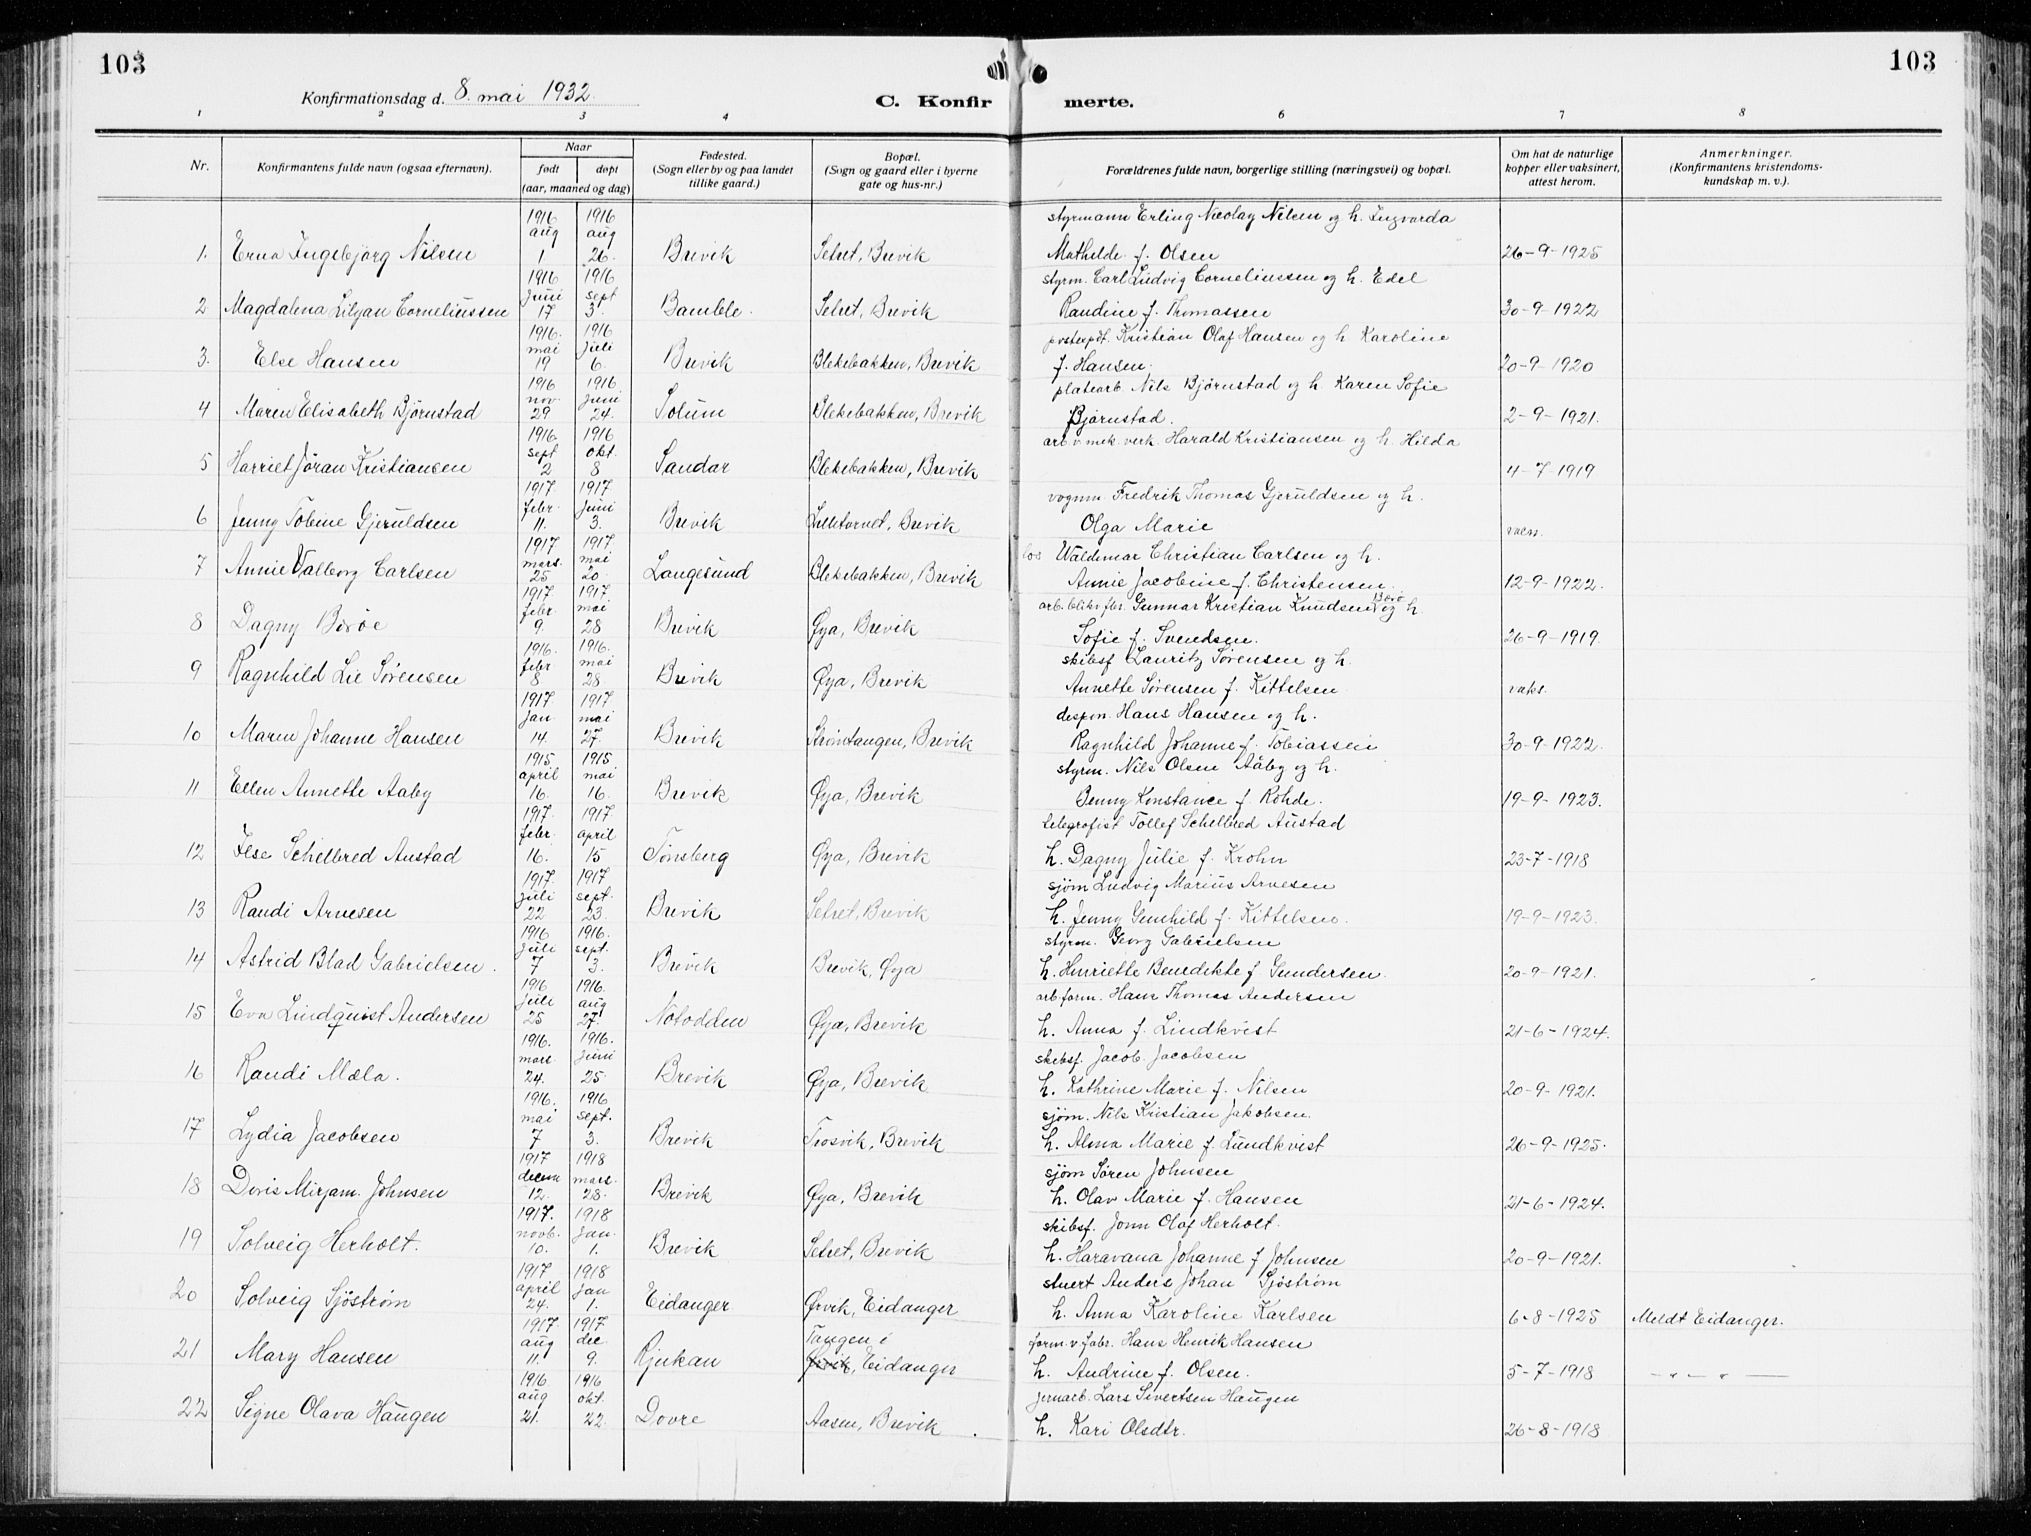 103
103
Konfirmationsdag d. 8. mai 1932.
C. Konfirmerte.
1 2 3 4 5 6 7 8
Nr. Konfirmantens fulde navn (ogsaa efternavn). Naar født døpt (aar, maaned og dag) Fødested. (Sogn eller by og paa landet tillike gaard.) Bopæl. (Sogn og gaard eller i byerne gate og hus-nr.) Forældrenes fulde navn, borgerlige stilling (næringsvei) og bopæl. Om hat de naturlige kopper eller vaksinert, attest herom. Anmerkninger. (Konfirmantens kristendomskundskap m. v.).
1916 1916 styrmann Erling Nicolay Nilsen og h. Ingvarda
aug aug
1. Erna Ingebjørg Nilsen 1 26. Brevik Setret, Brevik Mathilde f. Olsen 26-9-1925
1916 1916 styrm. Carl Ludvig Corneliussen og h. Edel
juni sept
2 Magdalena Lilyan Corneliussen 17 3. Bamble. Setret, Brevik Randine f. Thomassen 30-9-1922
1916. 1916 postexpdt. Kristian Olaf Hansen og h Karoline
mai juli
3. Else Hansen 19 6. Brevik Blekebakken, Brevik f. Hansen. 20-9-1920
1916 1916. platearb. Nils Bjørnstad og h Karen Sofie
nov. juni
4 Maren Elisabeth Bjørnstad 29. 24. Solum Blekebakken, Brevik Bjørnstad. 2-9-1921.
1916. 1916 arb. v. mek. verk. Harald Kristiansen og h. Hilda
sept okt.
5 Harriet Jøran Kristiansen 2 8 Sandar Blekebakken, Brevik 4-7-1919
1917 1917 vognm. Fredrik Thomas Gjeruldsen og h.
febr. juni
6 Jenny Tobine Gjeruldsen 11. 3. Brevik Lilletorvet, Brevik Olga Marie
1917 1917. los Waldemar Christian Carlsen og h.
mars. mai
7 Annie Valborg Carlsen 25 20 Langesund Blekebakken, Brevik Annie Jacobine f. Christensen. 12-9-1922.
1917. 1917. arb. blikv. fbr. Gunnar Kristian Knudsen Berø og h
febr. mai
8 Dagny Berøe 9. 28 Brevik Øya, Brevik Sofie f. Svendsen. 26-9-1919.
1916. 1916. skibsf. Lauritz Sørensen og h.
febr mai
9 Ragnhild Lie Sørensen 8 28. Brevik Øya, Brevik Annette Sørensen f. Kittelsen. vaks.
1917. 1917 despon. Hans Hansen og h.
jan. mai
10 Maren Johanne Hansen 14. 27. Brevik Strømtangen, Brevik Ragnhild Johanne f. Tobiassen 30-9-1922.
1915 1915 styrm. Nils Olsen Aaby og h.
april mai
11 Ellen Annette Aaby 16. 16. Brevik Øya, Brevik Benny Konstance f. Rohde. 19-9-1923.
1917. 1917. telegrafist Tollef Schelbred Austad
febr. april
12 Else Schelbred Austad 16. 15 Tønsberg Øya, Brevik h. Dagny Julie f. Krohn 23-7-1918
1917. 1917 sjøm Ludvig Marius Arvesen
juli sept.
13 Randi Arvesen 22 23. Brevik Setret, Brevik h. Jenny Gunhild f. Kittelsen. 19-9-1923.
1916 1916. styrm. Georg Gabrielsen
juli sept.
14 Astrid Blad Gabrielsen. 7 3. Brevik Brevik, Øya h. Henriette Benedikte f. Gundersen. 20-9-1921.
1916 1916. arb.form. Hans Thomas Andersen
juli aug
15 Eva Lindquist Andersen 25 27. Notodden Øya, Brevik h. Anna f. Lindkvist 21-6-1924.
1916. 1916. skibsf. Jacob Jacobsen
mars. juni
16 Randi Mæla. 24. 25 Brevik Øya, Brevik h. Kathrine Marie f. Nilsen 20-9-1921.
1916. 1916 sjøm. Nils Kristian Jakobsen.
mai sept.
17 Lydia Jacobsen 7 3. Brevik Trosvik, Brevik h. Alma Marie f. Lundkvist 26-9-1925.
1917 1918 sjøm Søren Johnsen
decem mars.
18 Doris Mirjam Johnsen 12. 28. Brevik Øya, Brevik h. Olav Marie f. Hansen 21-6-1924.
1917. 1918 skibsf. Jonn Olaf Herholt.
novb. jan.
19 Solveig Herholt. 10. 1. Brevik Setret, Brevik h. Haravana Johanne f Johnsen 20-9-1921.
1917 1918 stuert Anders Johan Sjöström
april jan
20 Solveig Sjöström 24. 1. Eidanger Ørvik, Eidanger h. Anna Karoline Karlsen 6-8-1925 Meldt Eidanger.
1917. 1917 Tangen i form. v. fabr. Hans Henrik Hansen
aug dec.
21 Mary Hansen 11. 9. Rjukan Ørvik, Eidanger h. Andrine f. Olsen. 5-7-1918 — " — " —
1916 1916 jernarb. Lars Sivertsen Haugen
aug okt.
22 Signe Olava Haugen 21. 22. Dovre Aasen, Brevik. h. Kari Olsdtr. 26-8-1918